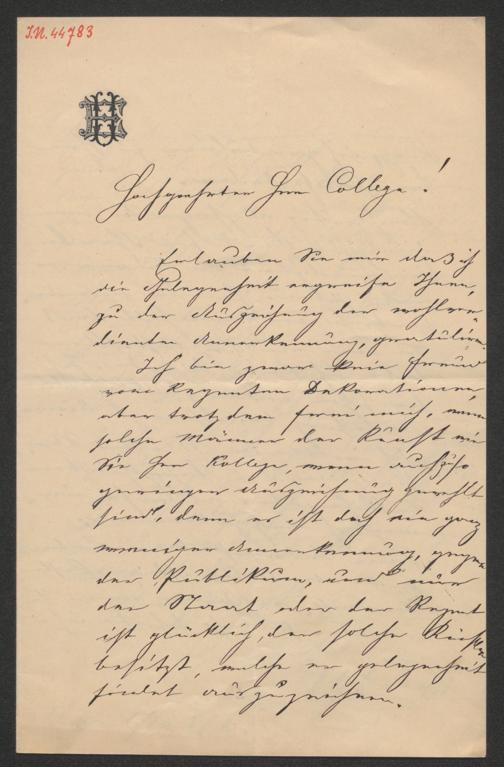 I.N. 44783
Hochgeehrter Herr College!
Erlauben Sie mir daß ich
die Gelegenheit ergreife Ihnen,
zu der Auszeichnung der wohlver-
dienten Anerkennung, gratulire.
Ich bin zwar kein Freund
von Regenten Dekorationen,
aber trotzdem freut mich, wenn
solche Männer der Kunst wie
Sie Herr Kollege, wenn auch so
geringer Auszeichnung gewählt
sind, denn es ist doch ein ganz
winziger Anerkennung, gegen
der Publikum, und nur
der Staat oder der Regent
ist glücklich, der solche Künstler
besitzt, welche er gelegenheit
findet auszuzeichnen.